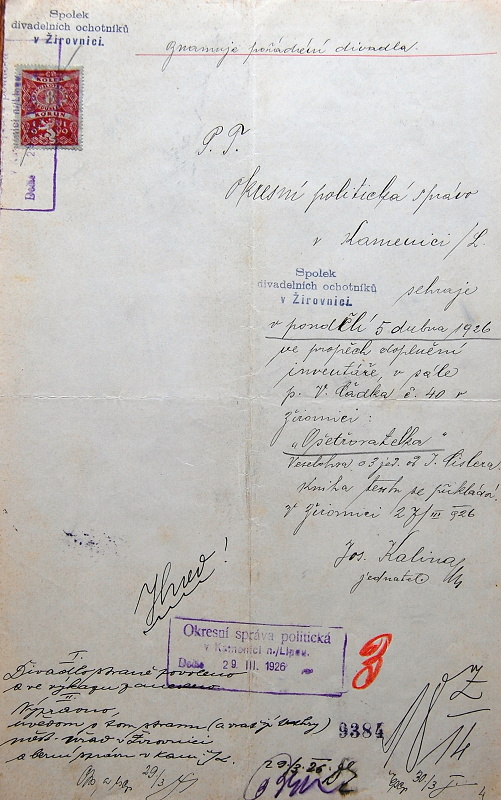 Spolek
divadelních ochotníků
v Žirovnici.
Oznamuje pořádání divadla.
KOLEK
8
KORUN
Došlo
P. T.
Okresní politická správo
v Kamenici /L.
Spolek
divadelních ochotníků
v Žirovnici.
sehraje
v pondělí 5 dubna 1926
ve prospěch doplnění
inventáře, v sále
p. V. Čádka č. 40 v
Žirovnici:
„Ošetřovatelka“
Veselohra o 3 jed. od J. Píslera
Kniha textu se přikládá.
V Žirovnici 27/III 1926
Jos. Kalina
jednatel
Ihned!
Okresní správa politická
v Kamenici n./Lipou.
Došlo 29. III. 1926
I.
Divadlo povoleno
a ve výkazu
II.
Vypraveno,
(a vrací knihy)
měst. úřad v Žirovnici
a berní správu v Kam. /L.
29/3
9384
29/3 26
Z
I
14
30/3
4